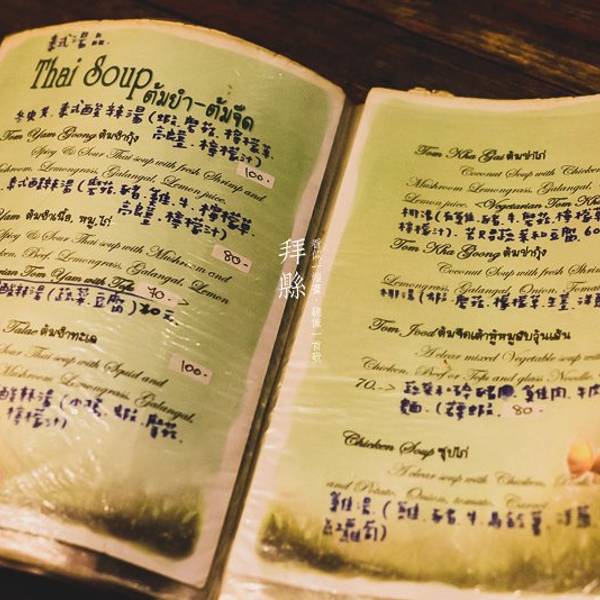 泰式湯品
Thai Soup
ต้มยำ-ต้มจืด
泰式酸辣湯(蝦.磨菇.檸檬草.
Tom Yam Goong ต้มยำกุ้ง
檸檬汁)
Spicy & Sour Thai soup with fresh Shrimp and
100.-
Mushroom, Lemongrass, Galangal, Lemon juice.
泰式酸辣湯(磨菇.豬.雞.牛.檸檬草.
檸檬汁)
Yam ต้มยำเนื้อ, หมู, ไก่
80.-
Spicy & Sour Thai soup with Mushroom and
Chicken, Beef, Lemongrass, Galangal, Lemon
Tom Yam with Tofu 70.->
酸辣湯(蔬菜.豆腐)70元
Talae ต้มยำทะเล
Sour Thai soup with Squid and
100.-
Mushroom, Lemongrass, Galangal,
酸辣湯(小 蝦.磨菇.
檸檬汁)
拜
縣
Tom Kha Gai ต้มข่าไก่
Coconut Soup with Chicken
Mushroom Lemongrass, Galangal,
Lemon juice, <Vegetarian Tom Kha
椰湯(有雞.豬.牛.磨菇.檸檬草
檸檬汁).若只是蔬菜和豆腐.60
Tom Kha Goong ต้มข่ากุ้ง
Coconut Soup with fresh Shrimp
Lemongrass, Galangal, Onion, Tomato
椰湯(蝦.磨菇.檸檬草.生薑.洋蔥
Tom Jood ต้มจืดเต้าหู้หมูสับวุ้นเส้น
A clear mixed Vegetable soup with
Chicken, Beef or Tofu and glass Noodle
70..-> 蔬菜和 豬肉.雞肉.牛肉
麵.( 蝦 80.-
Chicken Soup ซุปไก่
A clear soup with Chicken,
and Potato, Onion, tomato,
雞湯.(雞.豬.牛.馬鈴薯.洋蔥
紅蘿蔔)